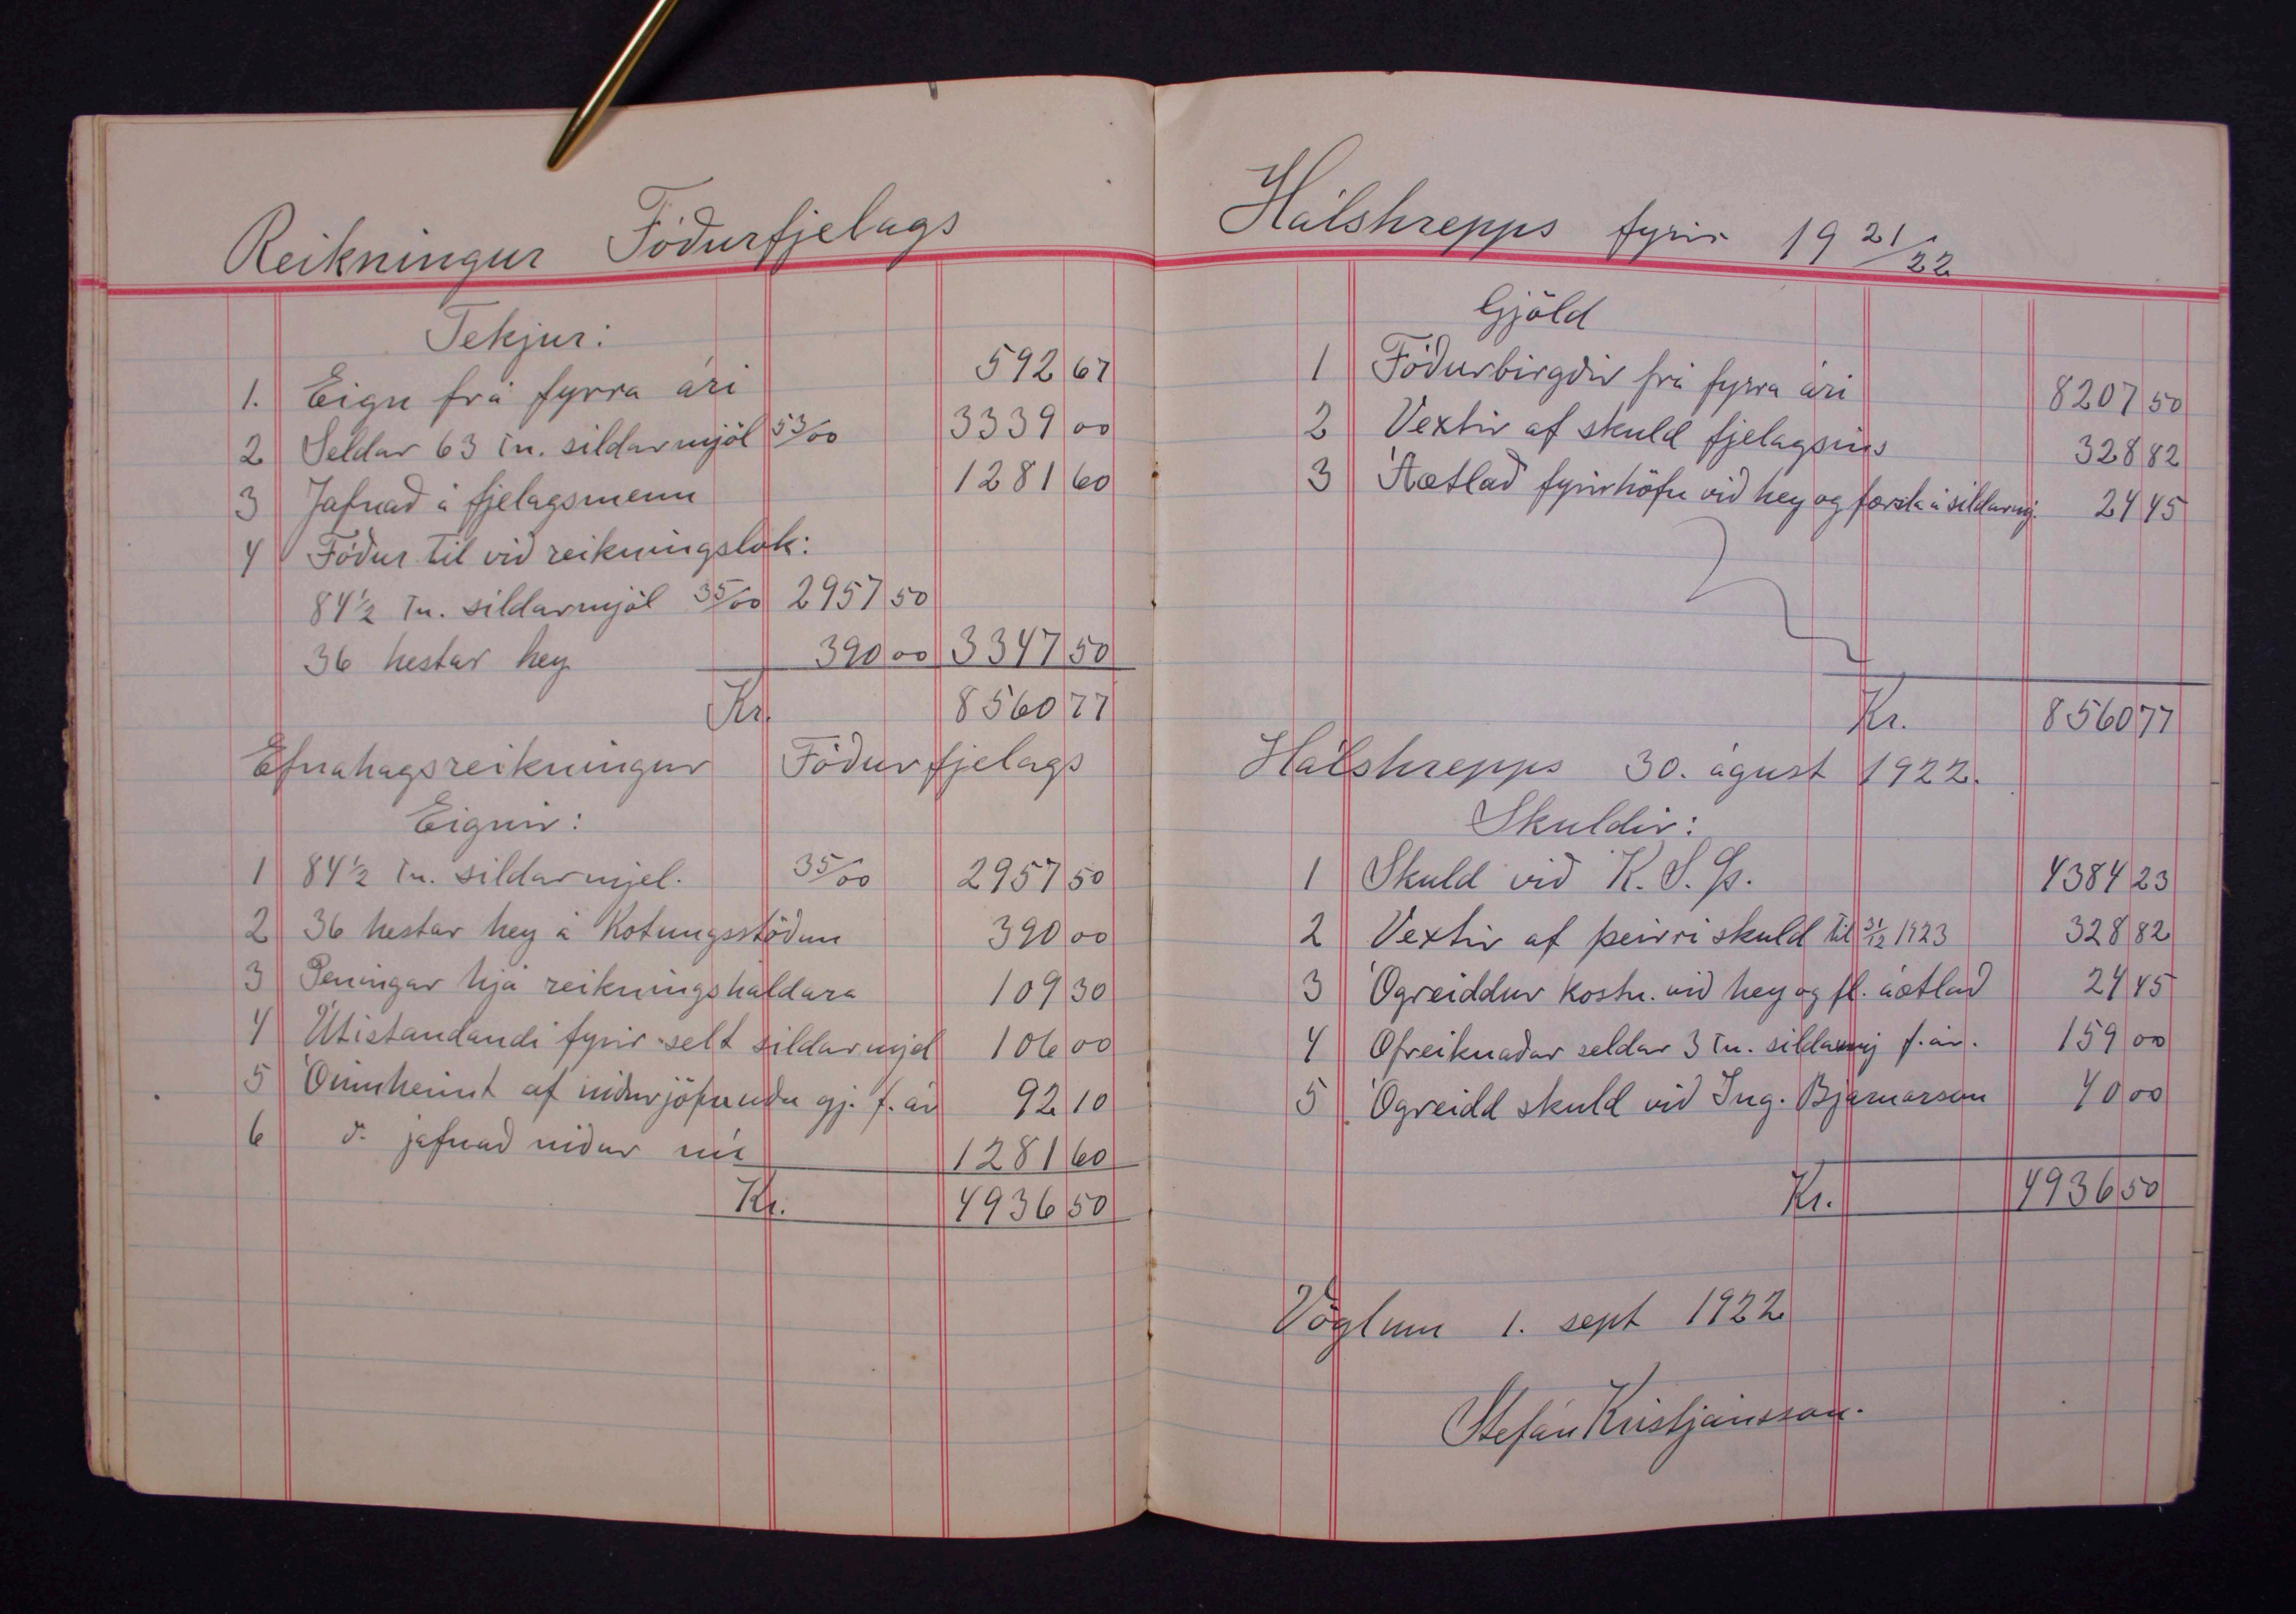 Reikningur Fóðurfjelags
Tekjur:
1. Eign frá fyrra ári 592 67
2 Seldar 63 tn. sildarmjöl 53/00 3339 00
3 Jafnað á fjelagsmenn 1281 60
4 Fóður til við reikningslok:
84 1/2 tn. sildarmjöl 35/00 2957 50
36 hestar hey 390 00 3347 50
Kr. 8560 77
Efnahagsreikningur Fóðurfjelags
Eignir:
1 84 1/2 tn. sildarmjel. 35/00 2957 50
2 36 hestar hey á Kotungsstöðum 390 00
3 Peningar hjá reikningshaldara 109 30
4 Útistandandi fyrir selt sildarmjel 106 00
5 Óinnheimt af niðurjöfnuðu gj. f. ár 92 10
6 do. jafnað niður nú 1281 60
Kr. 4936 50
Hálshrepps fyrir 19 21/22
Gjöld
1 Fóðurbirgðir frá fyrra ári 8207 50
2 Vextir af skuld fjelagsins 328 82
3 Áætlað fyrirhöfn við hey og færsla á sildarmj. 24 45
Kr. 8560 77
Hálshrepps 30. águst 1922.
Skuldir:
1 Skuld við K. S. Þ. 4384 23
2 Vextir af þeirri skuld til 31/12 1923 328 82
3 Ógreiddur kostn. við hey og fl. áætlað 24 45
4 Ofreiknaðar seldar 3 tn. sildarmj f. ár. 159 00
5 Ógreidd skuld við Ing. Bjarnarson 40 00
Kr. 4936 50
Vöglum 1. sept 1922
Stefán Kristjánsson.